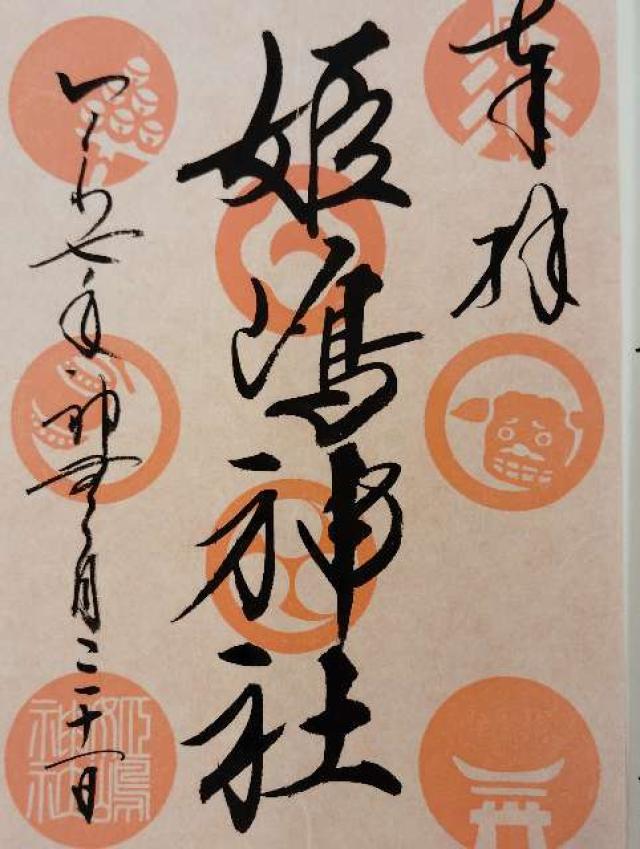 奉拝
姫嶋神社
令和七年神無月二十一日
姫嶋
神社